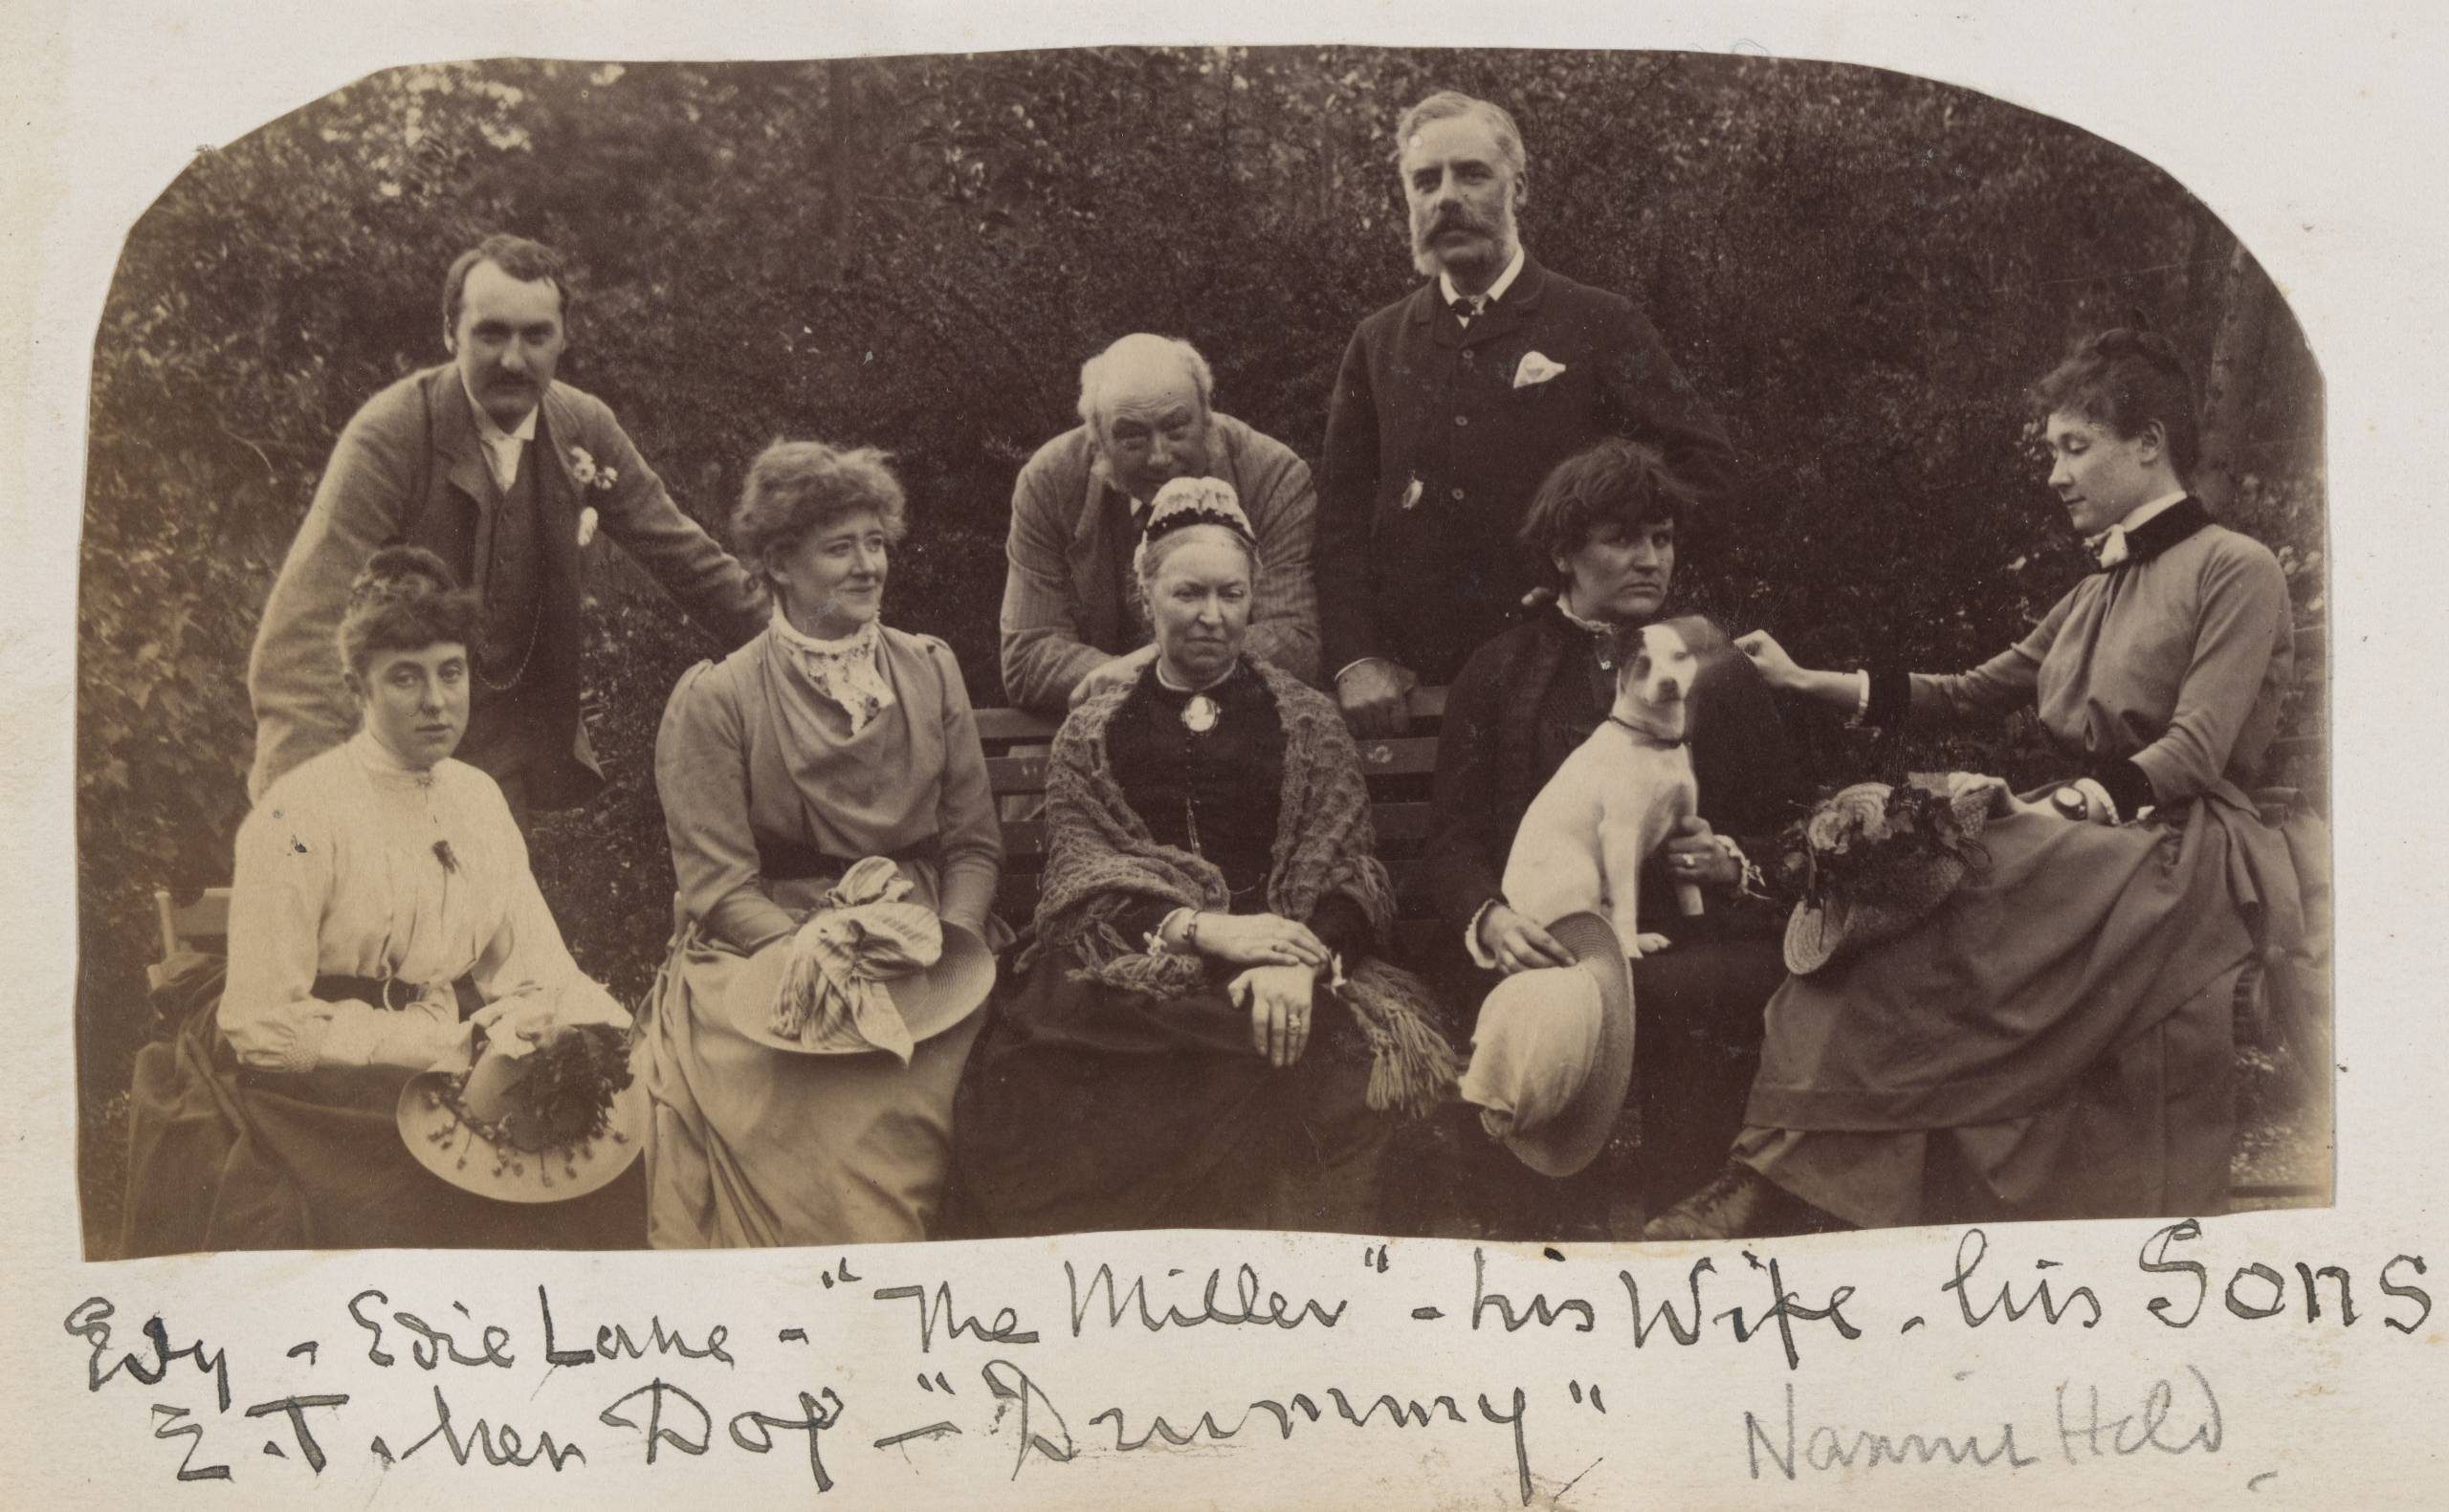 Edy - Edie Lane - "The Miller" - his Wife - his Sons
E.T. her Dog - "Drummy"
Nannie Held